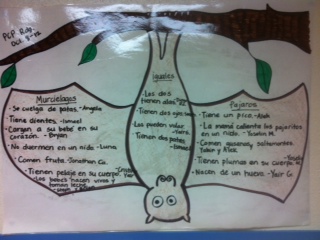 PCP Rdg.
Oct. 3-12
iguales
- Los dos
tienen alas.
- Tienen dos ojos
- Los pueden volar
- Tienen dos patas.
- Ismael
Murcielagos
- Se cuelga de patas. - Angelie
Tiene dientes. - Ismael
- Cargan a su bebé en su
corazón. - Bryan
No duermen en un nido - Luna
- Comen fruta. - Jonathan Cu.
- Tienen pelaje en su cuerpo
- Los bebés nacen vivos y
toman leche
Pajaros
- Tiene un pico. - Aleh
- La mamá calienta los pajaritos
en un nido. - Yoselin M.
- Comen gusanos, saltamontes.
Ruben y Alex
- Tienen plumas en su cuerpo
- Nacen de un huevo. - Yair G.